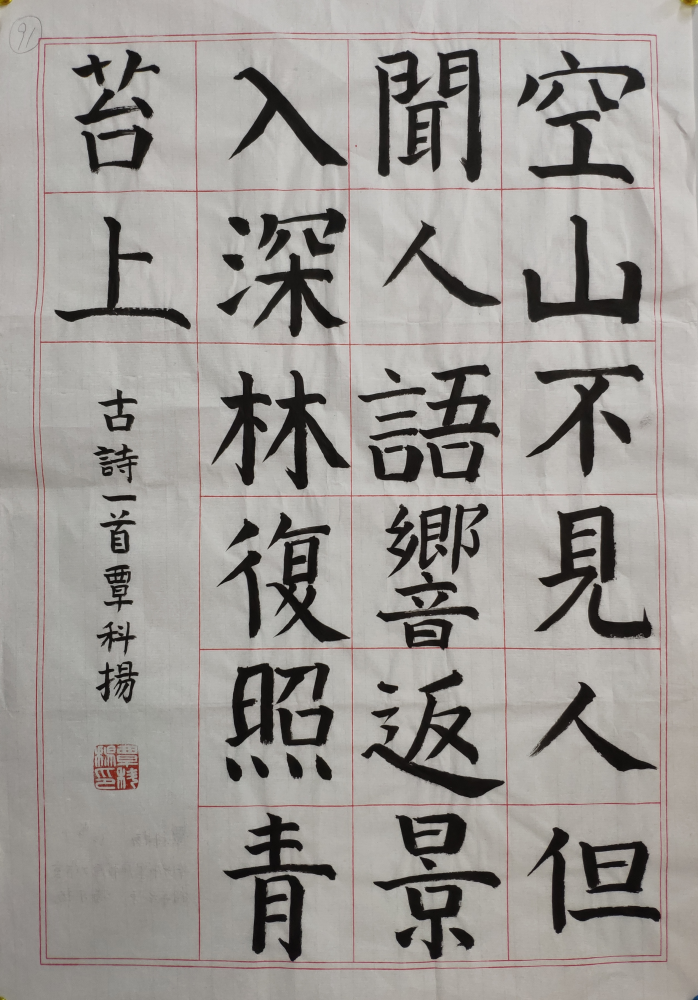 空山不見人但
聞人語響返景
入深林復照青
苔上
古詩一首覃科揚
91